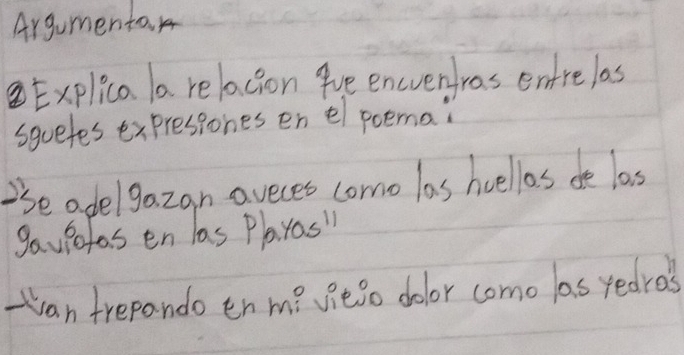 Argumentar
② Explica la relacion que encuentras entre las
sguetes expresiones en el poema:
-"Se adelgazan aveces como las huellas de las
gaviotas en las Playas"
-"Van trepando en mi viejo dolor como las yedras"